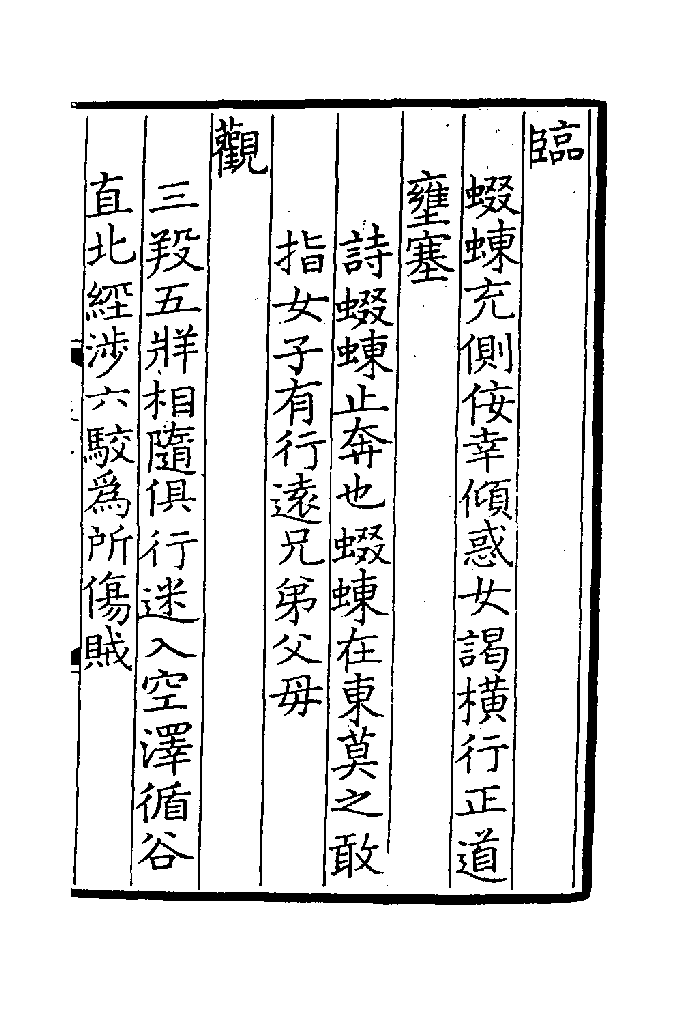 臨
蝃蝀充側佞幸傾惑女謁橫行正道
壅塞
詩蝃蝀止奔也蝃蝀在東莫之敢
指女子有行遠兄弟父母
觀
三羖五牂相隨俱行迷入空澤循谷
直北經涉六駮爲所傷賊